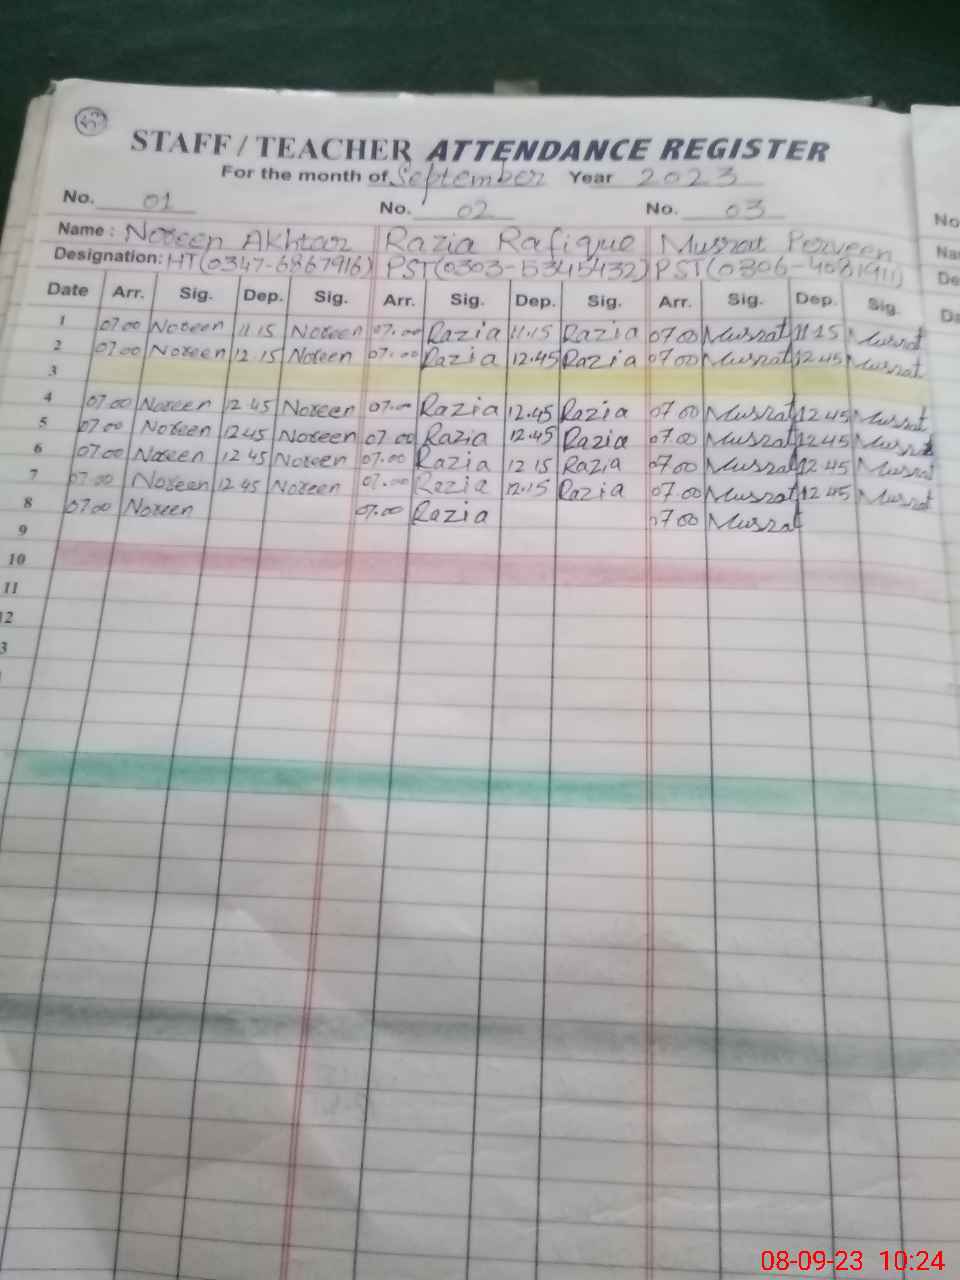 STAFF / TEACHER ATTENDANCE REGISTER
For the month of September Year 2023
No. 01 No. 02 No. 03
No
Name : Noreen Akhtar Razia Rafique Mussrat Perveen
Na
Designation: HT(0347-6867916) PST(0303-5345432) PST(0306-4081911)
De
Date Arr. Sig. Dep. Sig. Arr. Sig. Dep. Sig. Arr. Sig. Dep. Sig.
Da
1 07.00 Noreen 11.15 Noreen 07.00 Razia 11.15 Razia 07.00 Mussrat 11.15 Mussrat
2 07.00 Noreen 12.15 Noreen 07.00 Razia 12.45 Razia 07.00 Mussrat 12.45 Mussrat
3
4 07.00 Noreen 12.45 Noreen 07.00 Razia 12.45 Razia 07.00 Mussrat 12.45 Mussrat
5 07.00 Noreen 12.45 Noreen 07.00 Razia 12.45 Razia 07.00 Mussrat 12.45 Mussrat
6 07.00 Noreen 12.45 Noreen 07.00 Razia 12.15 Razia 07.00 Mussrat 12.45 Mussrat
7 07.00 Noreen 12.45 Noreen 07.00 Razia 12.15 Razia 07.00 Mussrat 12.45 Mussrat
8 07.00 Noreen 07.00 Razia 07.00 Mussrat
9
10
11
12
3
08-09-23 10:24